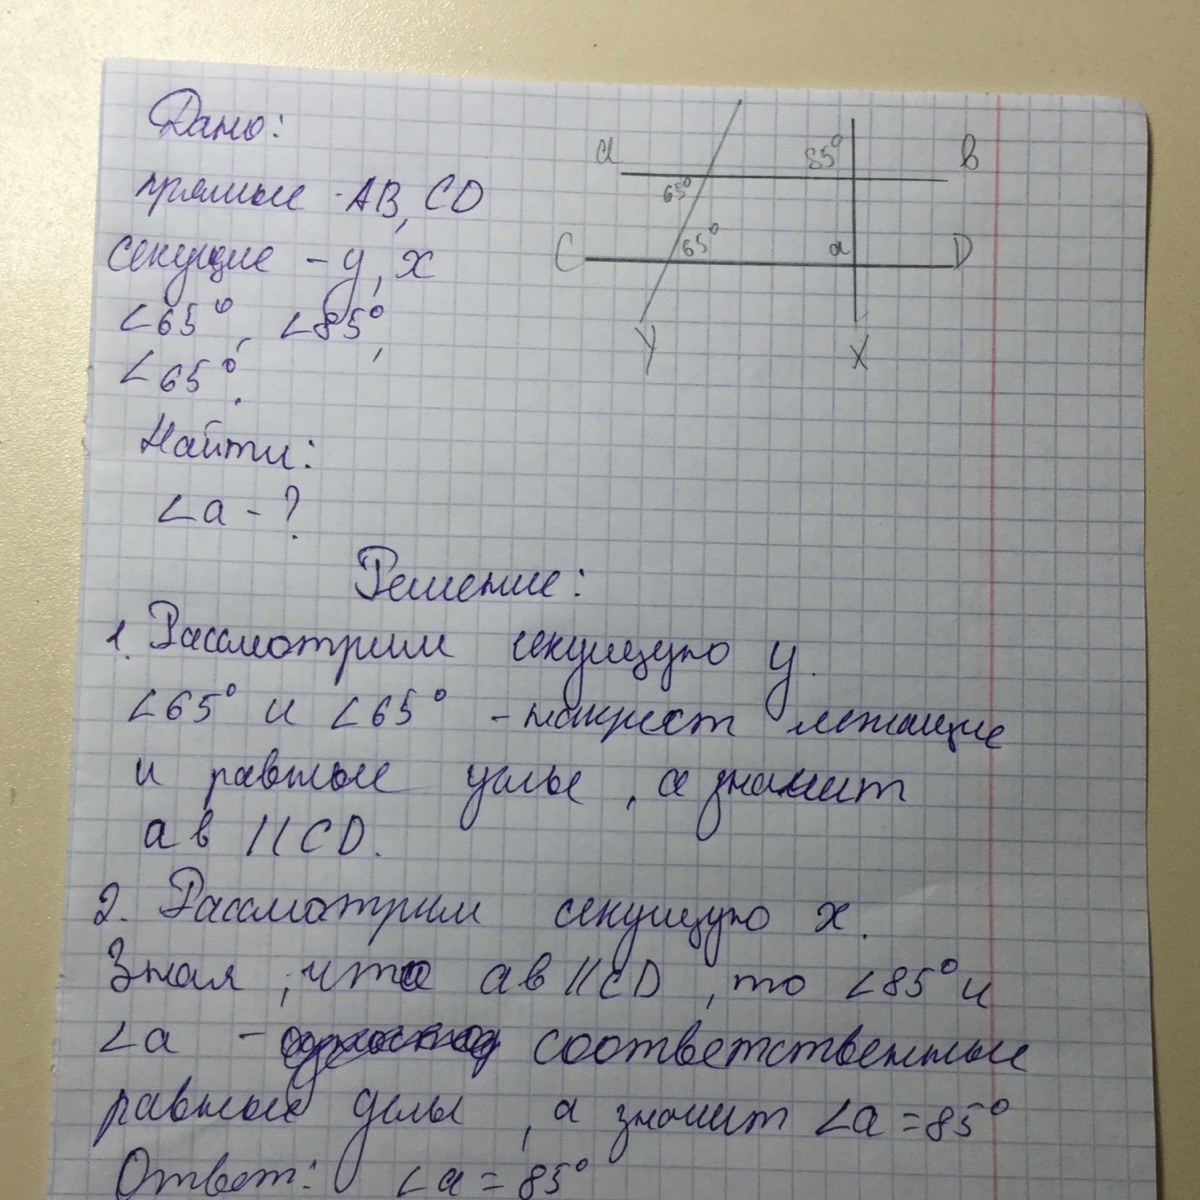 Дано:
прямые - AB, CD
секущие - y, x
∠65°, ∠85°,
∠65°.
Найти:
∠a - ?
a
B
85°
65°
C
65°
a
D
y
x
Решение:
1. Рассмотрим секущую y.
∠65° и ∠65° - накрест лежащие
и равные углы, а значит
ав || CD.
2. Рассмотрим секущую x.
Зная, что ав || CD, то ∠85° и
∠a - соответственные
равные углы, а значит ∠a = 85°
Ответ: ∠a = 85°